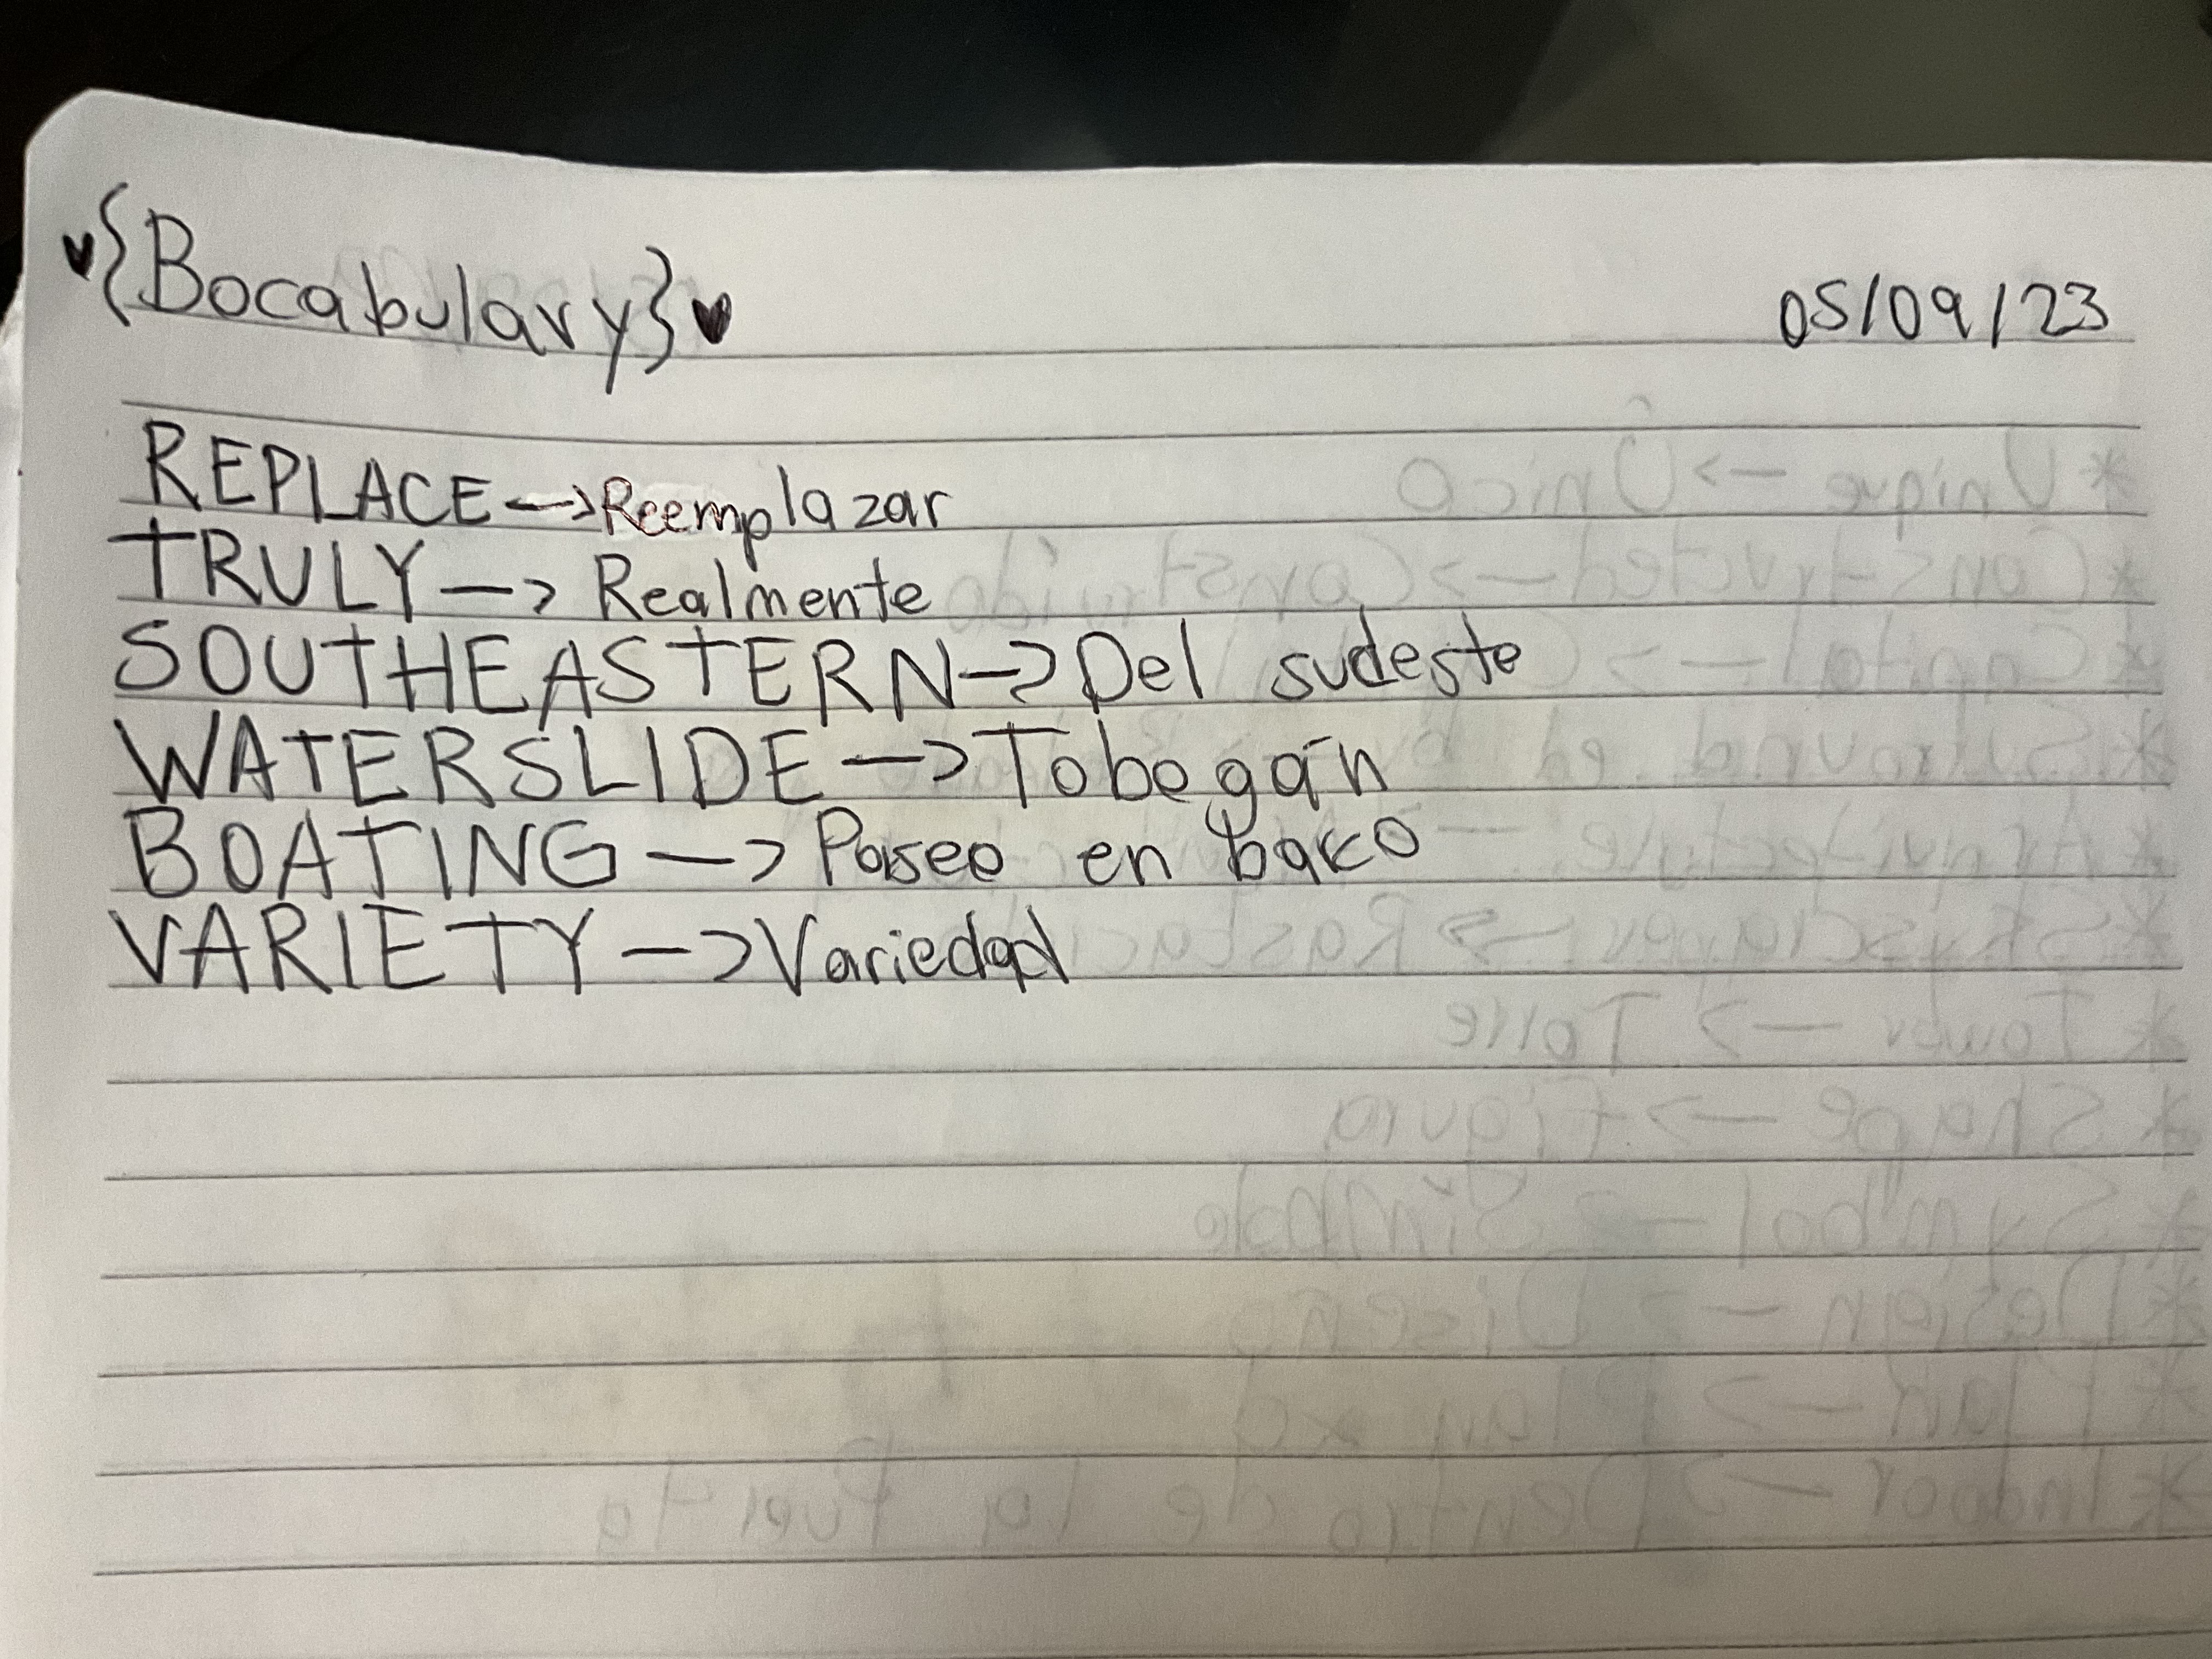 {Bocabulary} 05/09/23
REPLACE —> Reemplazar
TRULY —> Realmente
SOUTHEASTERN —> Del sudeste
WATERSLIDE —> Tobogán
BOATING —> Paseo en barco
VARIETY —> Variedad